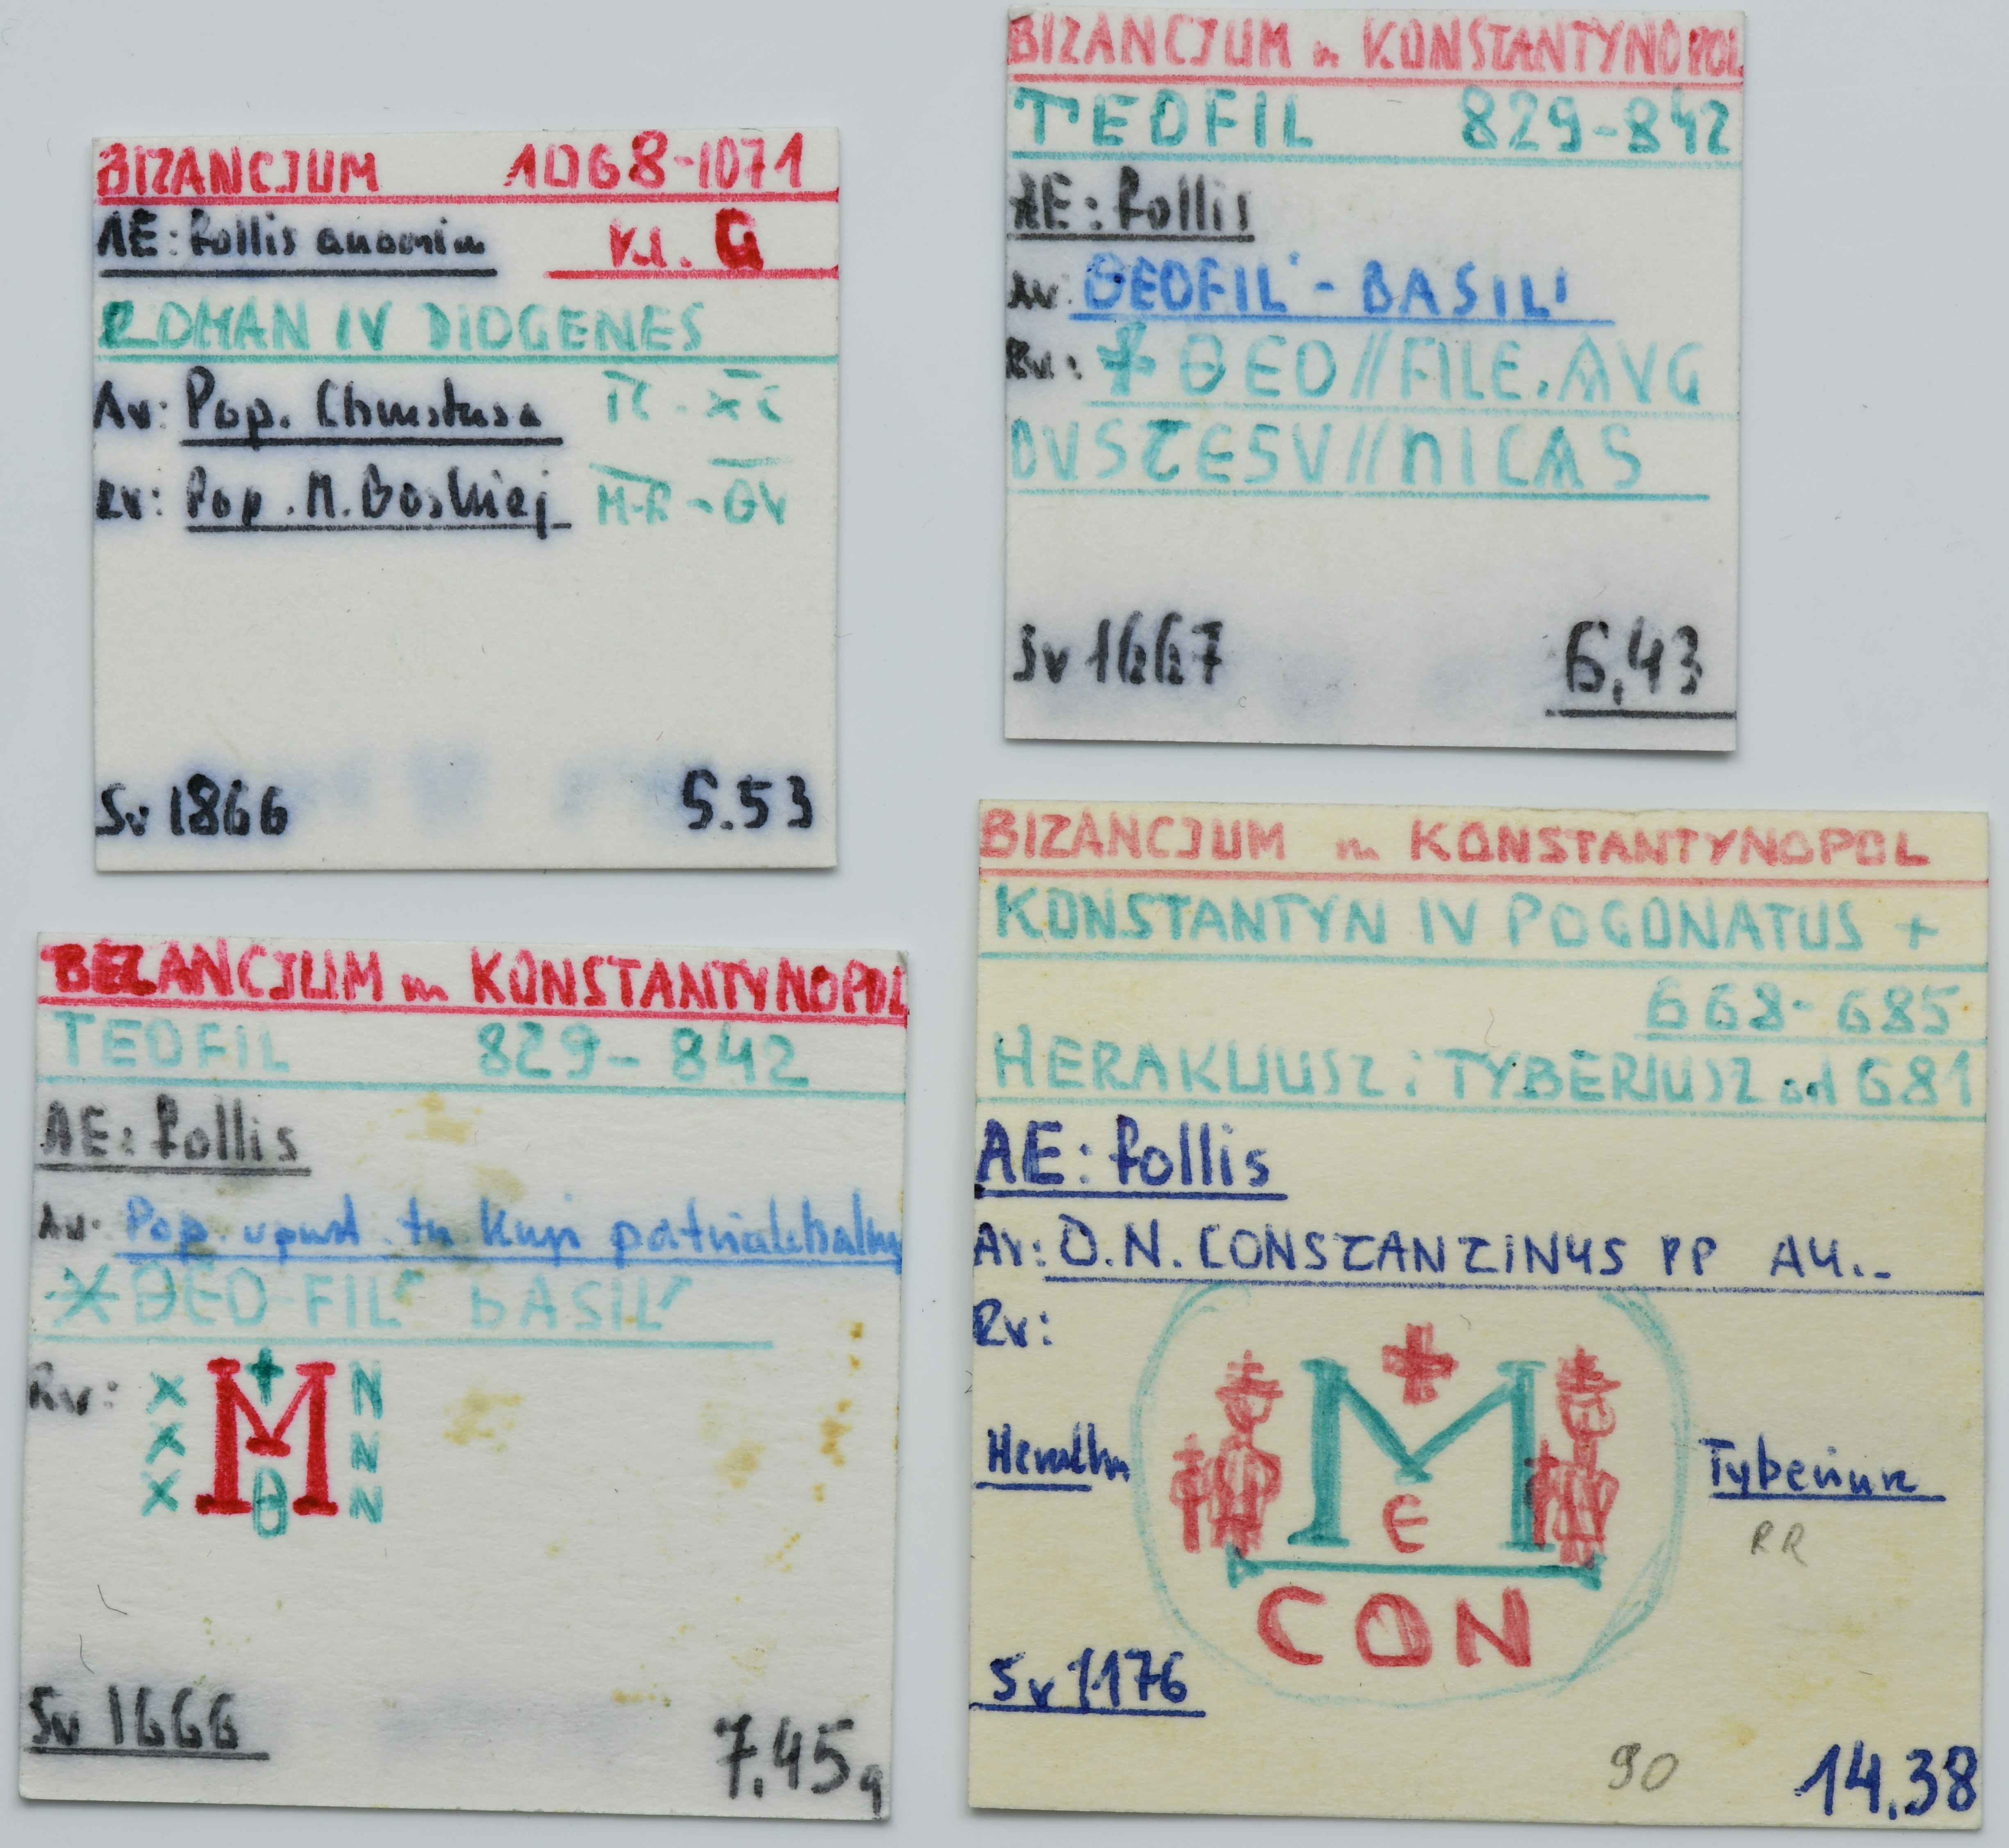 BIZANCJUM 1068-1071
AE: follis anonim Kl. G
ROMAN IV DIOGENES
Av: Pop. Chrystusa IC - XC
Rv: Pop. M. Boskiej MR - ΘV
Sv 1866 5.53
BIZANCJUM m KONSTANTYNOPOL
TEOFIL 829-842
AE: follis
Av: ΘEOFIL' - BASIL'
Rv: + ΘEO//FILE.AVG
OVSTESV//NICAS
Sv 1667 6,43
BIZANCJUM m KONSTANTYNOPOL
TEOFIL 829-842
AE: follis
Av: Pop.
* ΘEO-FIL' bASIL'
Rv: X M N
X N
X Θ N
Sv 1666 7.45g
BIZANCJUM m KONSTANTYNOPOL
KONSTANTYN IV POGONATUS +
668-685
HERAKLIUSZ i TYBERIUSZ od 681
AE: follis
Av: D.N. CONSTANTINYS PP AY.-
Rv:
M
E
Tyberiusz
RR
CON
Sv 1176
90 14.38